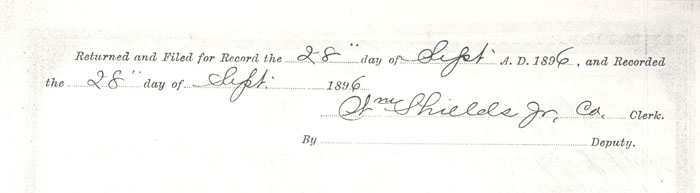 Returned and Filed for Record the 28" day of Sept. A. D. 1896, and Recorded
the 28" day of Sept. 1896
Shields Jr, Co. Clerk.
By Deputy.